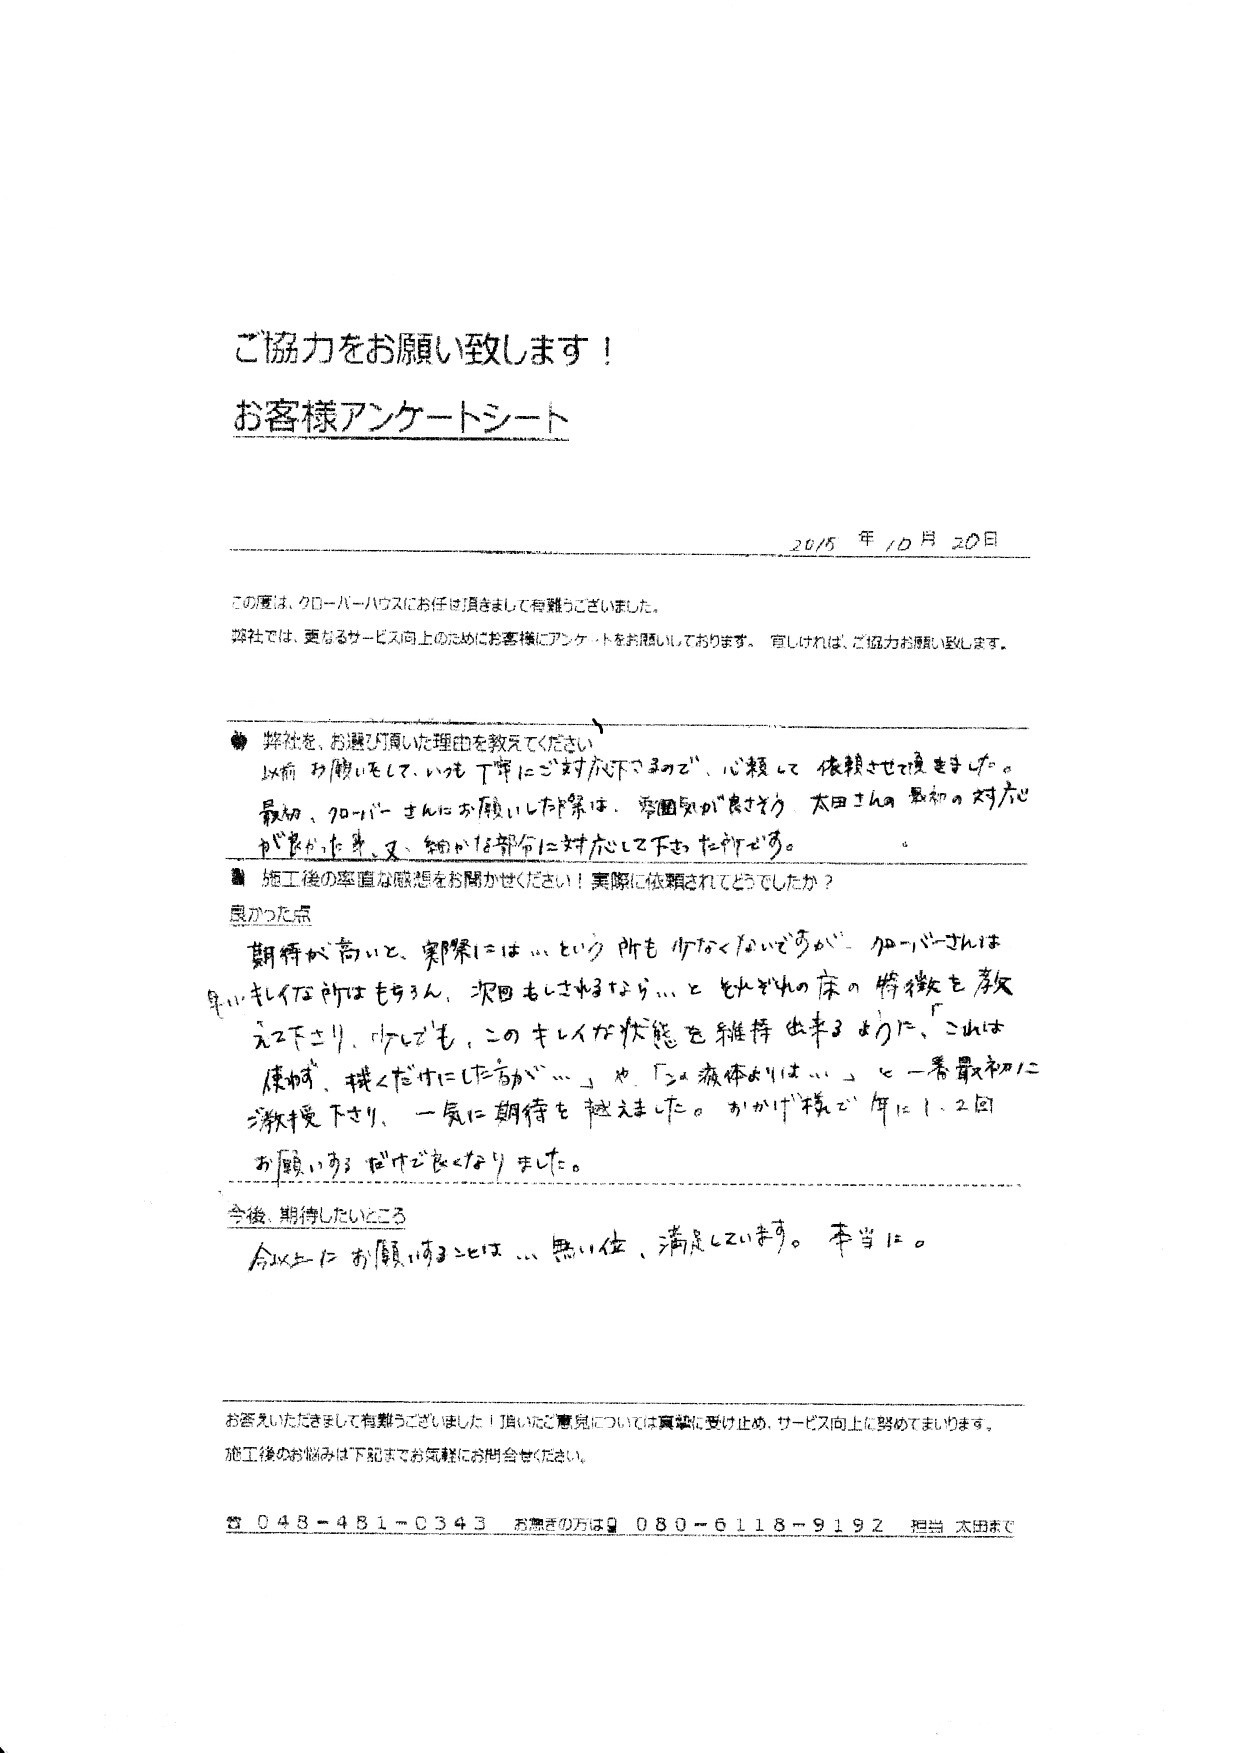 ご協力をお願い致します！
お客様アンケートシート
2015 年 10 月 20日
この度は、クローバーハウスにお任せ頂きまして有難うございました。
弊社では、更なるサービス向上のためにお客様にアンケートをお願いしております。 宜しければ、ご協力お願い致します。
弊社を、お選び頂いた理由を教えてください
以前お願いをして、いつも丁寧にご対応下さるので、心頼して 依頼させて頂きました。
最初、クローバーさんにお願いした際は、雰囲気が良さそう 太田さんの最初の対応
が良かった事、又、細かな部分に対応して下さった所です。
施工後の率直な感想をお聞かせください！実際に依頼されてどうでしたか？
良かった点
期待が高いと、実際には…という所も少なくないですが クローバーさんは
早い、キレイな所はもちろん、次回もしされるなら…と それぞれの床の特徴を教
えて下さり、少しでも、このキレイな状態を維持出来るように、「これは
使わず、掃くだけにした方が…」や「この液体よりは…」と一番最初に
ご教授下さり、一気に期待を越えました。おかげ様で年に1、2回
お願いするだけで良くなりました。
今後、期待したいところ
今以上にお願いすることは…無い位、満足しています。本当に。
お答えいただきまして有難うございました！頂いたご意見については真摯に受け止め、サービス向上に努めてまいります。
施工後のお悩みは下記までお気軽にお問合せください。
☎ 048-481-0343 お急ぎの方は 080-6118-9192 担当 太田まで